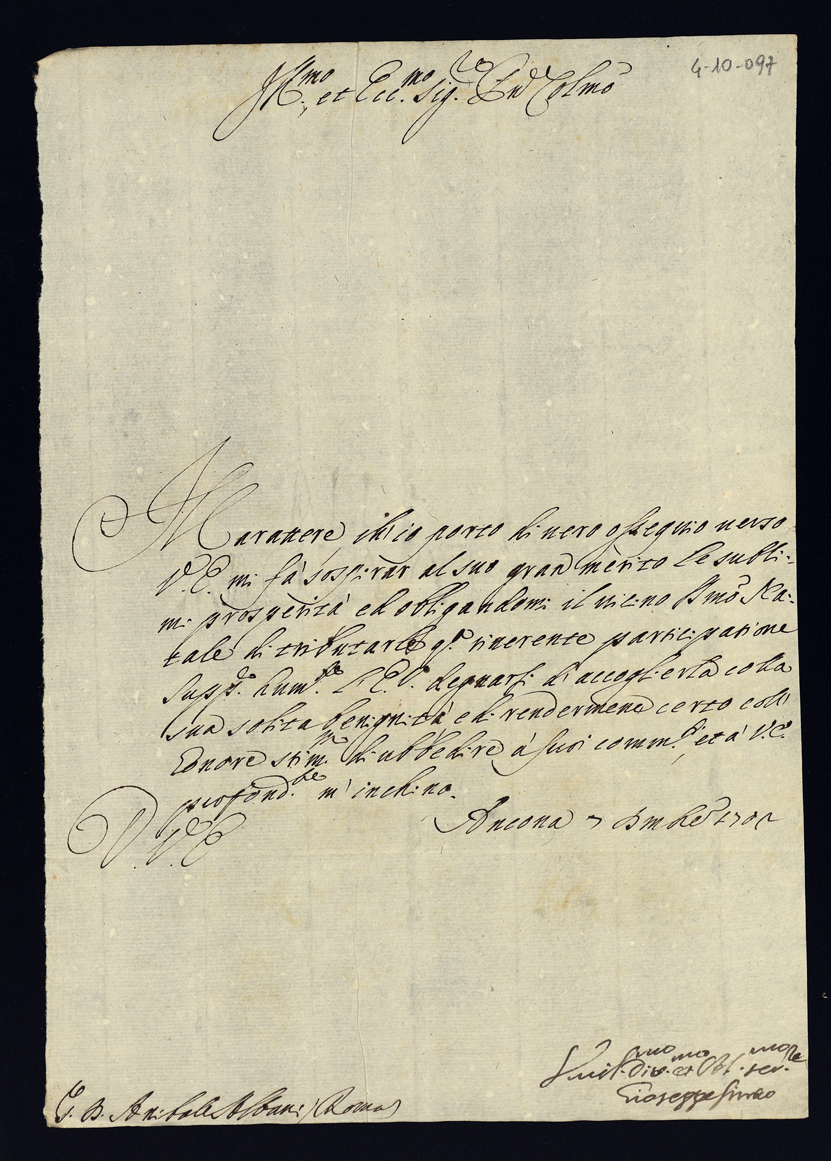 4-10-097
Ill.mo et Ecc.mo Sig.re Pnẽ Colmõ
Il Carattere, ch'io porto di vero ossequio verso
V.E. mi fà sospirar al suo gran merito le subli-
mi prosperità ed obligandomi il vicino SSmõ Na-
tale di tributarle q.a riverente participatione
supp.o hum.te l'E.V. degnarsi di accoglierla colla
sua solita benignità e di rendermene certo coll'
honore stim.mo di ubbedire à suoi comm.di, et à V.E.
profond.te m'inchino.
Ancona 7 Xmbre 1701
D. V. E.
Humil.mo Div.mo et Obl.mo ser.re
Gioseppe
D. Anibale Albani / Roma